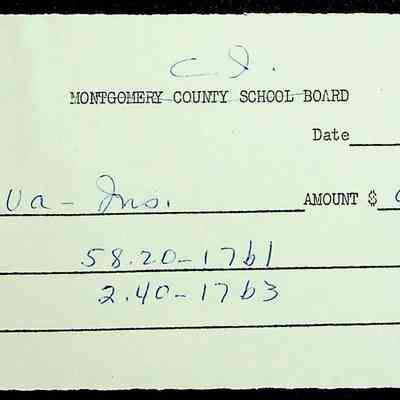 C. I.
MONTGOMERY COUNTY SCHOOL BOARD
Date
Va - Ins. AMOUNT $
58.20-17b1
2.40-17b3